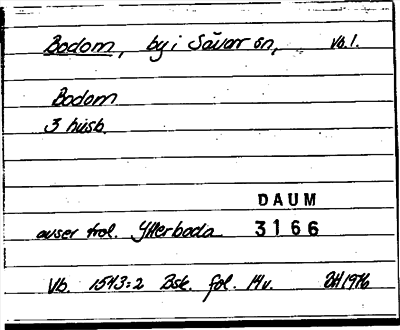 Bodom, by i Sävar sn, Vb.l.
Bodom
3 husb.
DAUM
avser trol. Ytterboda 3166
Vb. 1543:2 Bsk. fol. 14v. BH 1976